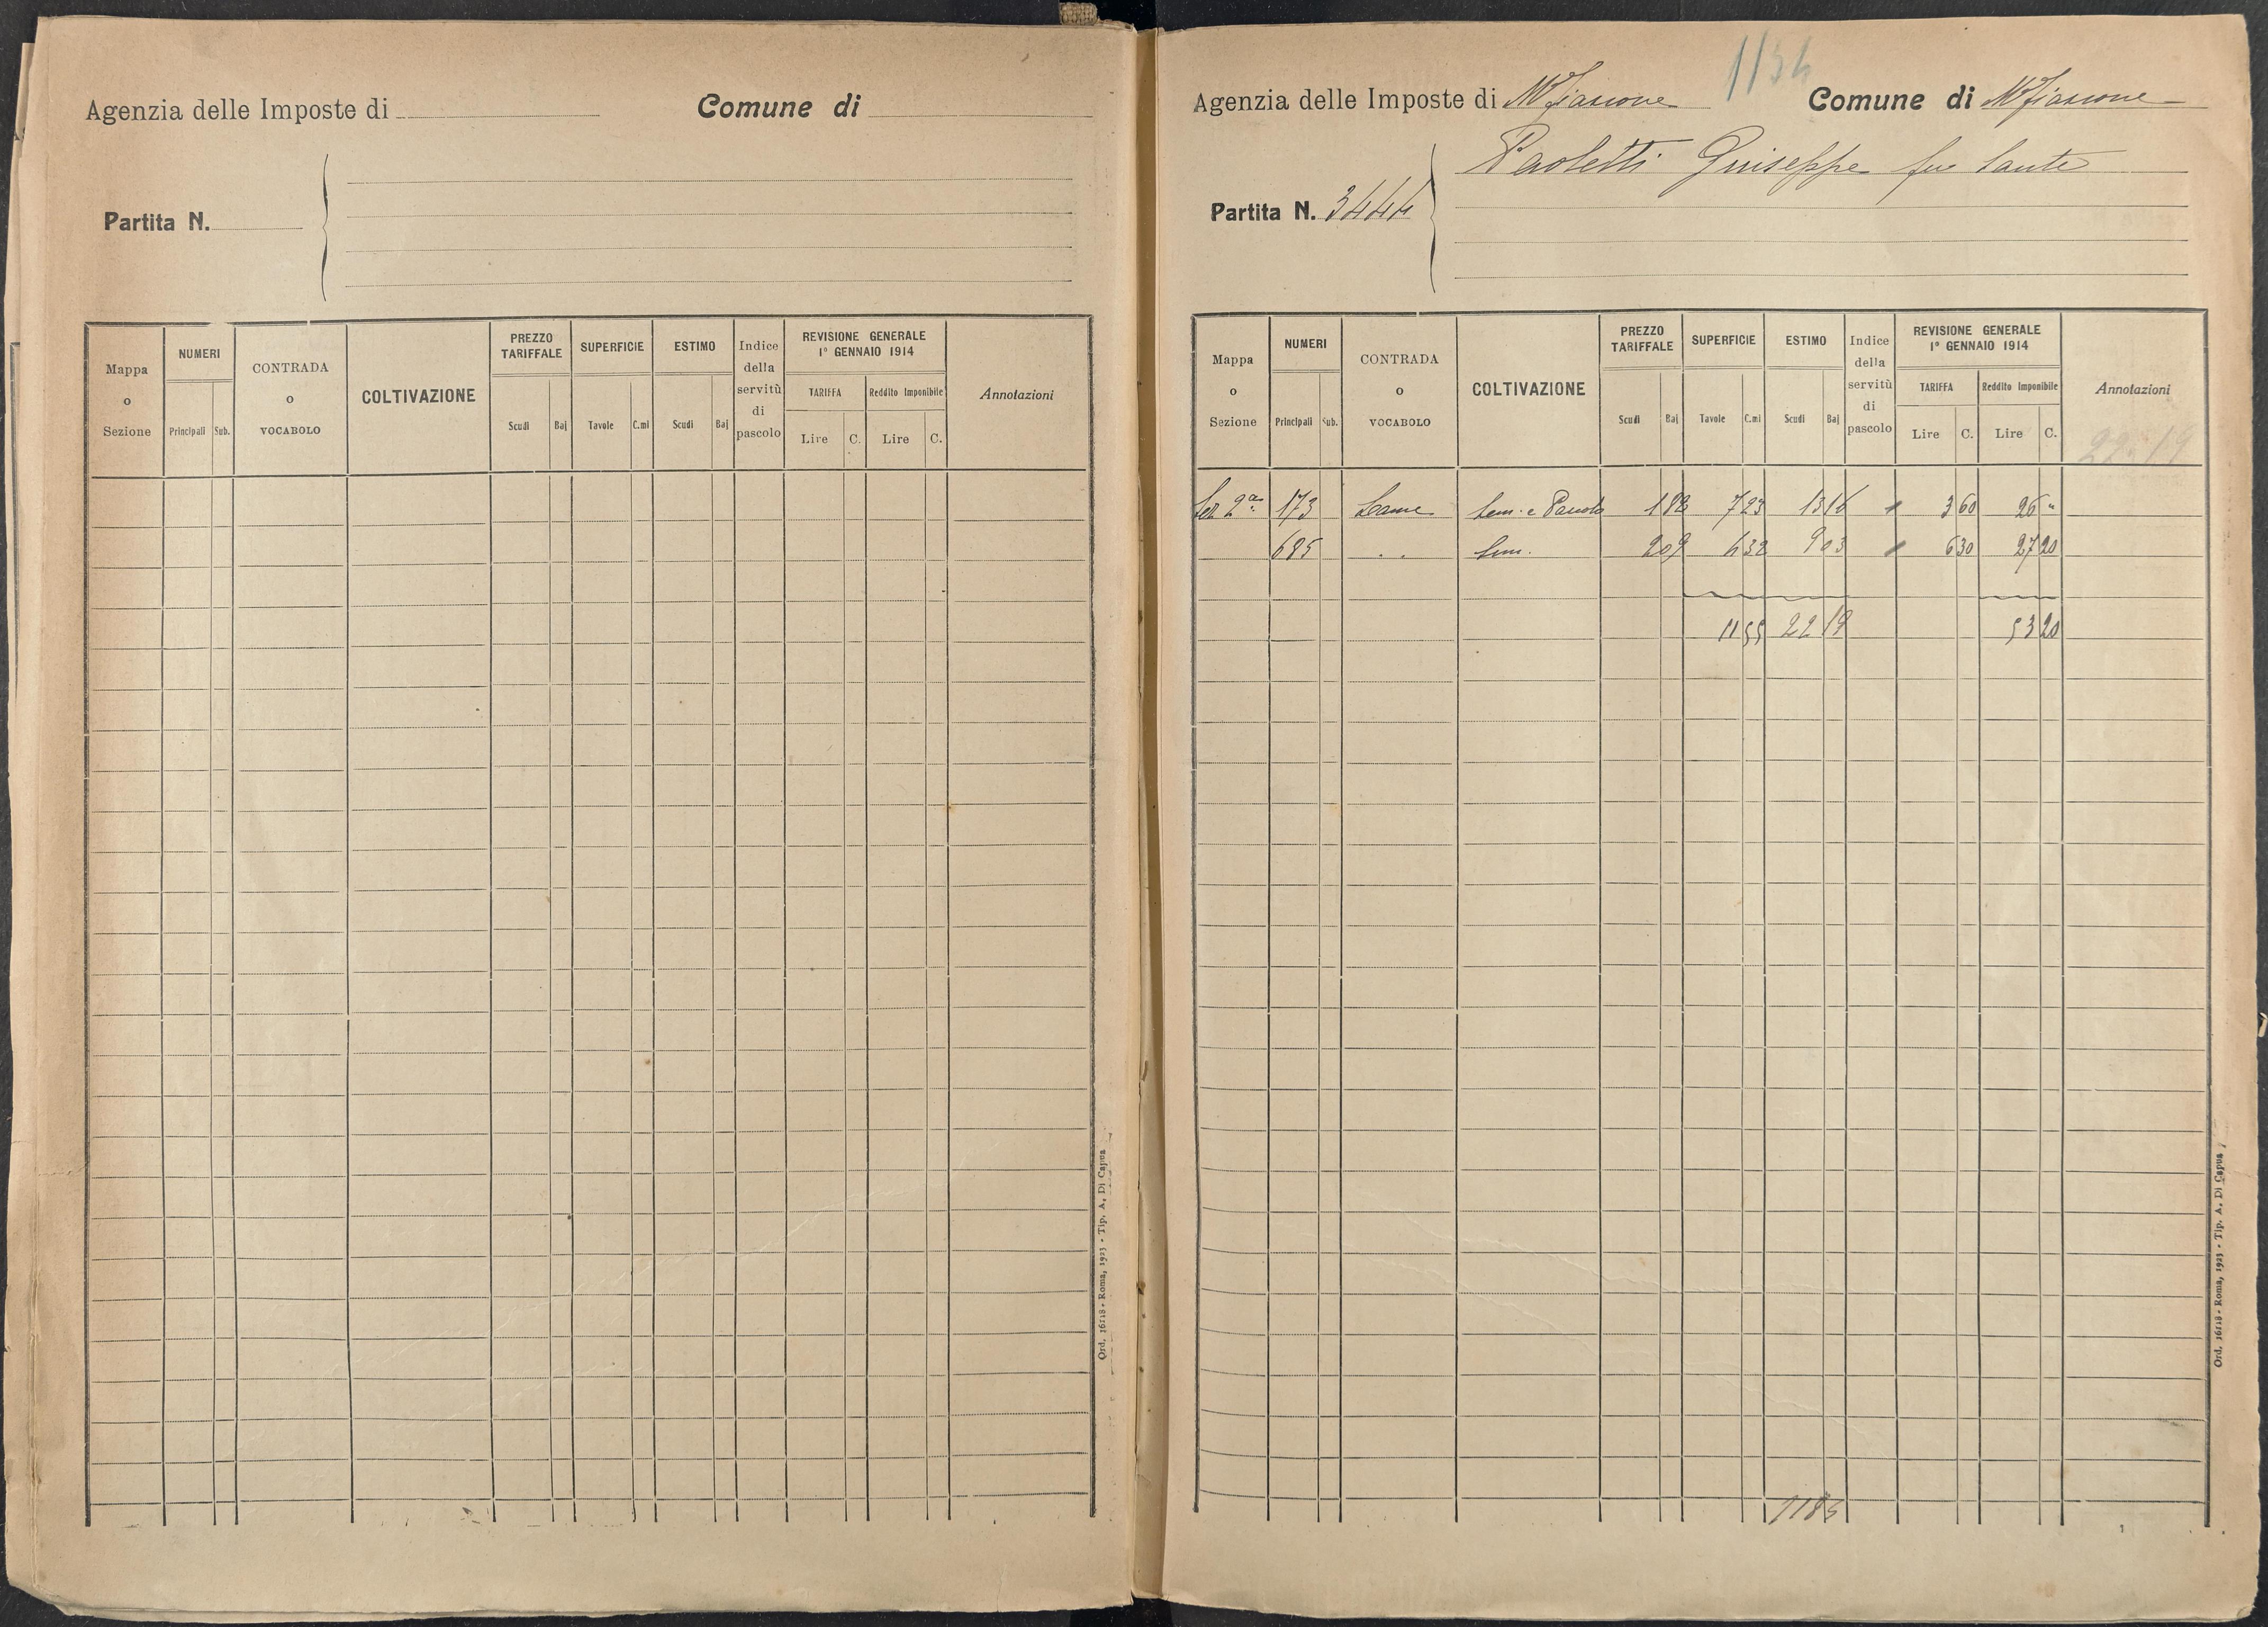 Agenzia delle Imposte di
Comune di
Partita N.
Mappa o Sezione
NUMERI
Principali
Sub.
CONTRADA o VOCABOLO
COLTIVAZIONE
PREZZO TARIFFALE
Scudi
Baj
SUPERFICIE
Tavole
C.mi
ESTIMO
Scudi
Baj
Indice della servitù di pascolo
REVISIONE GENERALE
1º GENNAIO 1914
TARIFFA
Lire
C.
Reddito Imponibile
Lire
C.
Annotazioni
Ord. 16118 - Roma, 1923 - Tip. A. Di Capua
1134
Agenzia delle Imposte di Mfiascone
Comune di Mfiascone
Paoletti Giuseppe fu Sante
Partita N. 3444
Mappa o Sezione
NUMERI
Principali
Sub.
CONTRADA o VOCABOLO
COLTIVAZIONE
PREZZO TARIFFALE
Scudi
Baj
SUPERFICIE
Tavole
C.mi
ESTIMO
Scudi
Baj
Indice della servitù di pascolo
REVISIONE GENERALE
1º GENNAIO 1914
TARIFFA
Lire
C.
Reddito Imponibile
Lire
C.
Annotazioni
22.19
Sez 2ª 173 Lame Sem. e Pascolo 1 82 7 23 13 16 3 60 26 "
685 " " Sem. 2 09 4 32 9 03 6 30 27 20
11 55 22 19 53 20
Ord. 16118 - Roma, 1923 - Tip. A. Di Capua